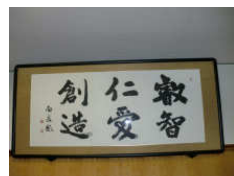 叡智
仁愛
創造